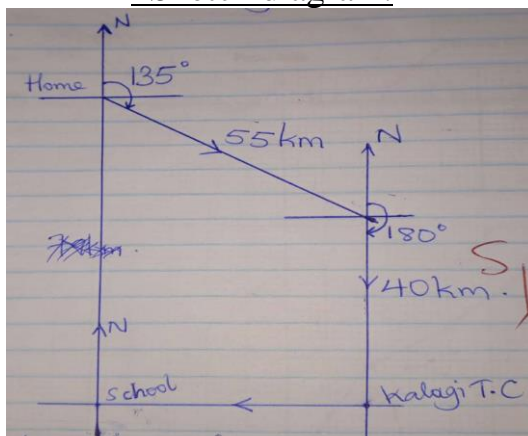 N
Home
135°
55km
N
180°
40km.
S
N
School
Kalagi T.C